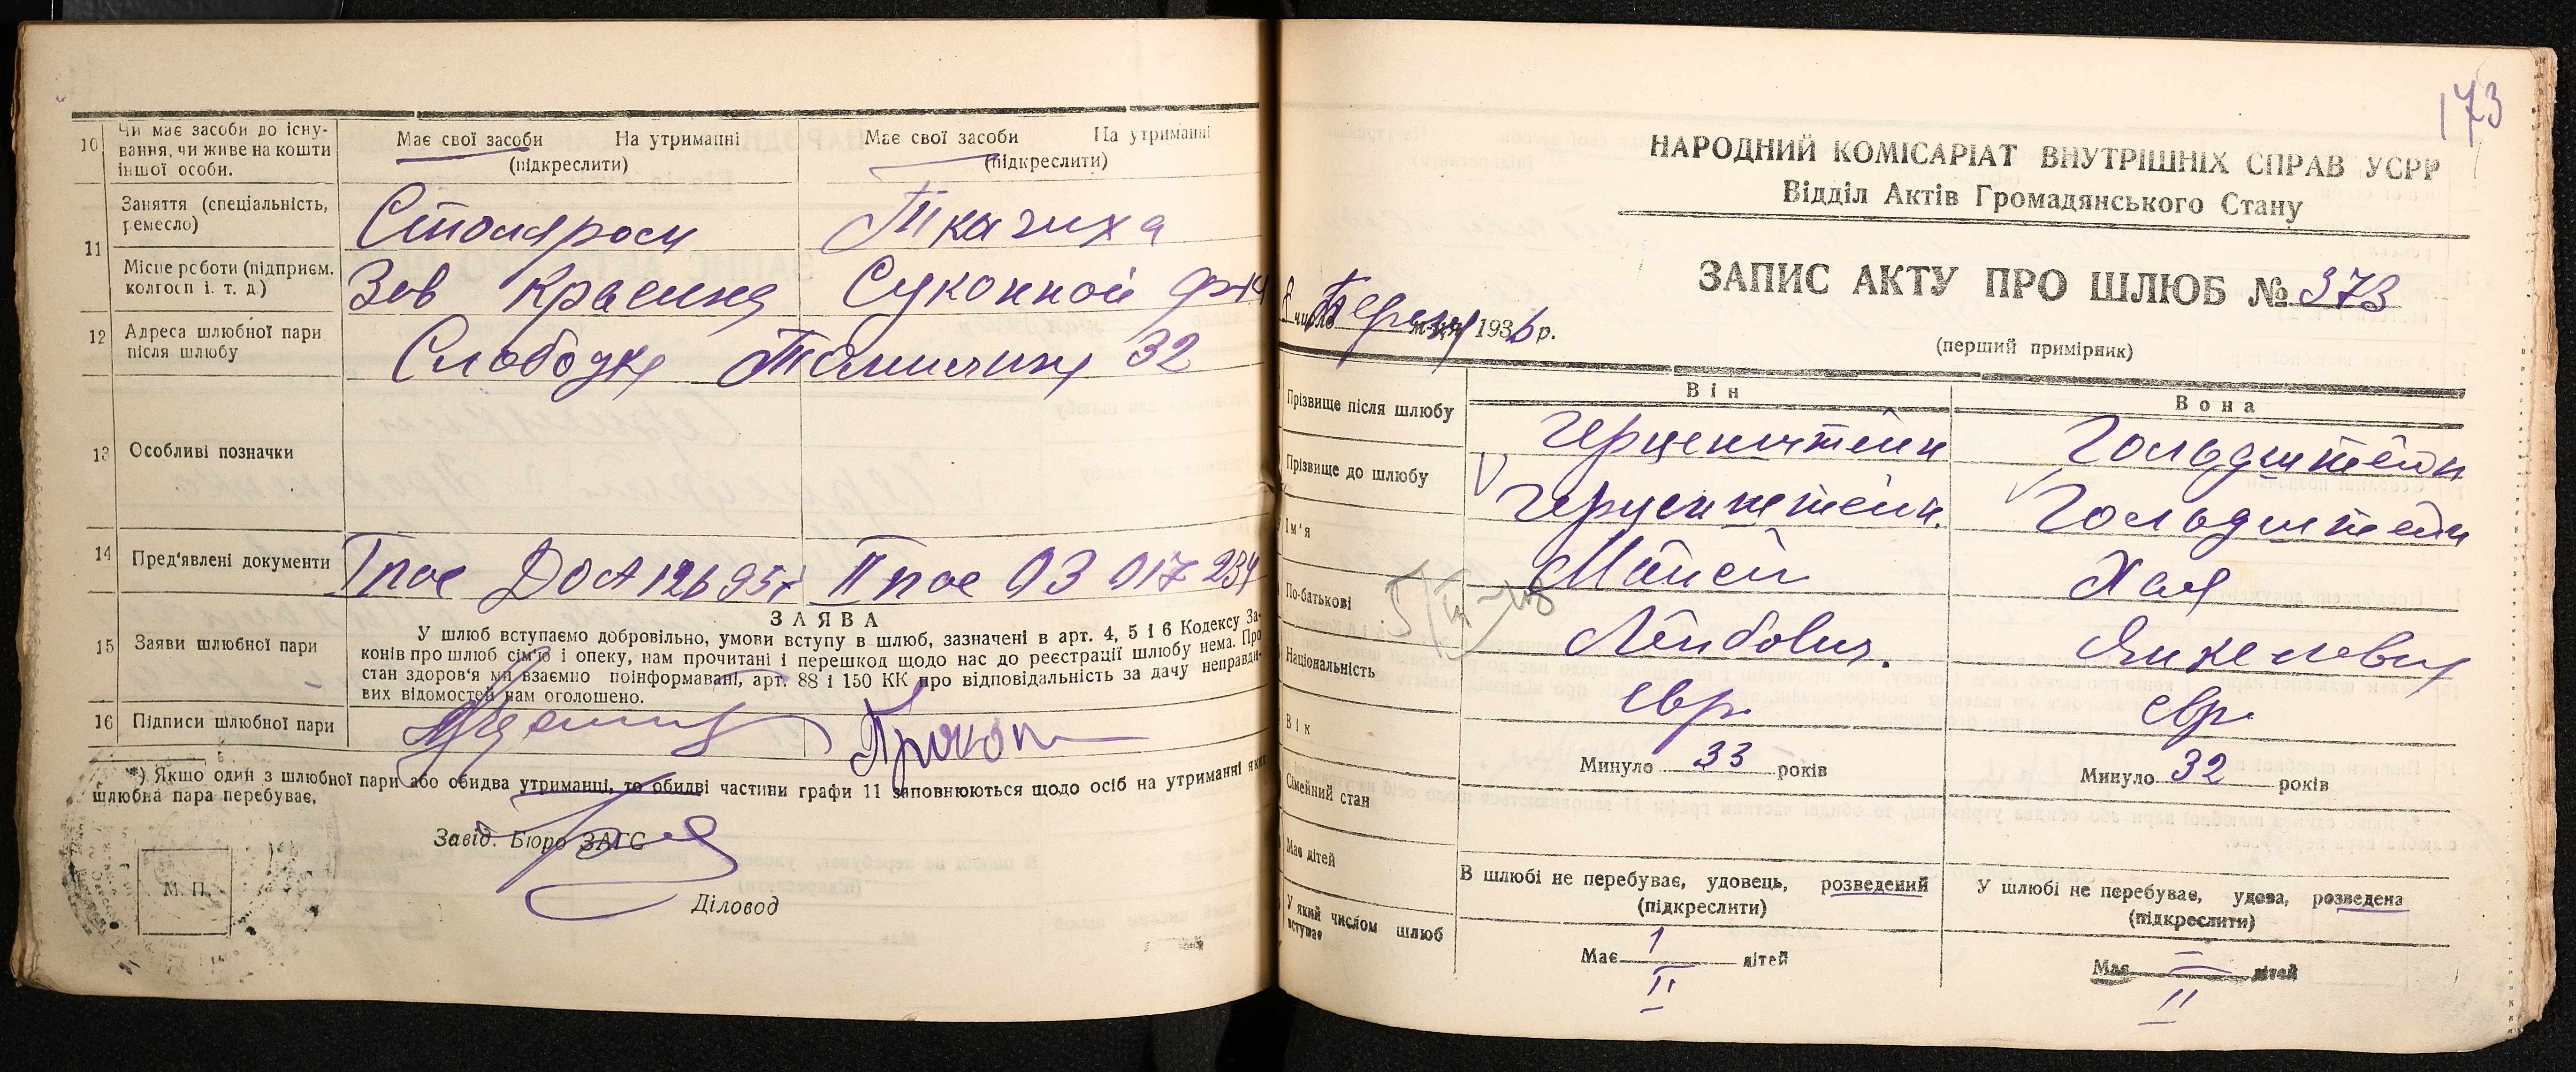 10 Чи має засоби до існу-
вання, чи живе на кошти
іншої особи.
Має свої засоби На утриманні
(підкреслити)
Має свої засоби На утриманні
(підкреслити)
11 Заняття (спеціальність,
ремесло)
Столяром
Ткачиха
Місце роботи (підприєм.
колгосп і. т. д.)
Зов Красина
Суконной ф-ки
12 Адреса шлюбної пари
після шлюбу
Слободка 32
13 Особливі позначки
14 Пред'явлені документи
I пас ДОА 126957 II пас ОЗ 017234
15 Заяви шлюбної пари
ЗАЯВА
У шлюб вступаємо добровільно, умови вступу в шлюб, зазначені в арт. 4, 5 і 6 Кодексу За-
конів про шлюб сім'ю і опеку, нам прочитані і перешкод щодо нас до реєстрації шлюбу нема. Про
стан здоров'я ми взаємно поінформавані, арт. 88 і 150 КК про відповідальність за дачу неправди-
вих відомостей нам оголошено.
16 Підписи шлюбної пари
*) Якщо один з шлюбної пари або обидва утриманці, то обидві частини графи 11 заповнюються щодо осіб на утриманні яких
шлюбна пара перебуває.
Завід. Бюро ЗАГС
М. П.
Діловод
173
НАРОДНИЙ КОМІСАРІАТ ВНУТРІШНІХ СПРАВ УСРР
Відділ Актів Громадянського Стану
ЗАПИС АКТУ ПРО ШЛЮБ № 373
8 число м-ця 1936 р.
(перший примірник)
Він
Вона
Прізвище після шлюбу
Герценштейн
Гольдштейн
Прізвище до шлюбу
Герценштейн.
Гольдштейн
Ім'я
Мойсей
Хая
По-батькові
Лейбович.
Янкелевна
Національність
євр.
євр.
Вік
Минуло 33 років
Минуло 32 років
Сімейний стан
В шлюбі не перебуває, удовець, розведений
(підкреслити)
У шлюбі не перебуває, удова, розведена
(підкреслити)
Має дітей
Має 1 дітей
Має — дітей
У який числом шлюб
вступає
II
II